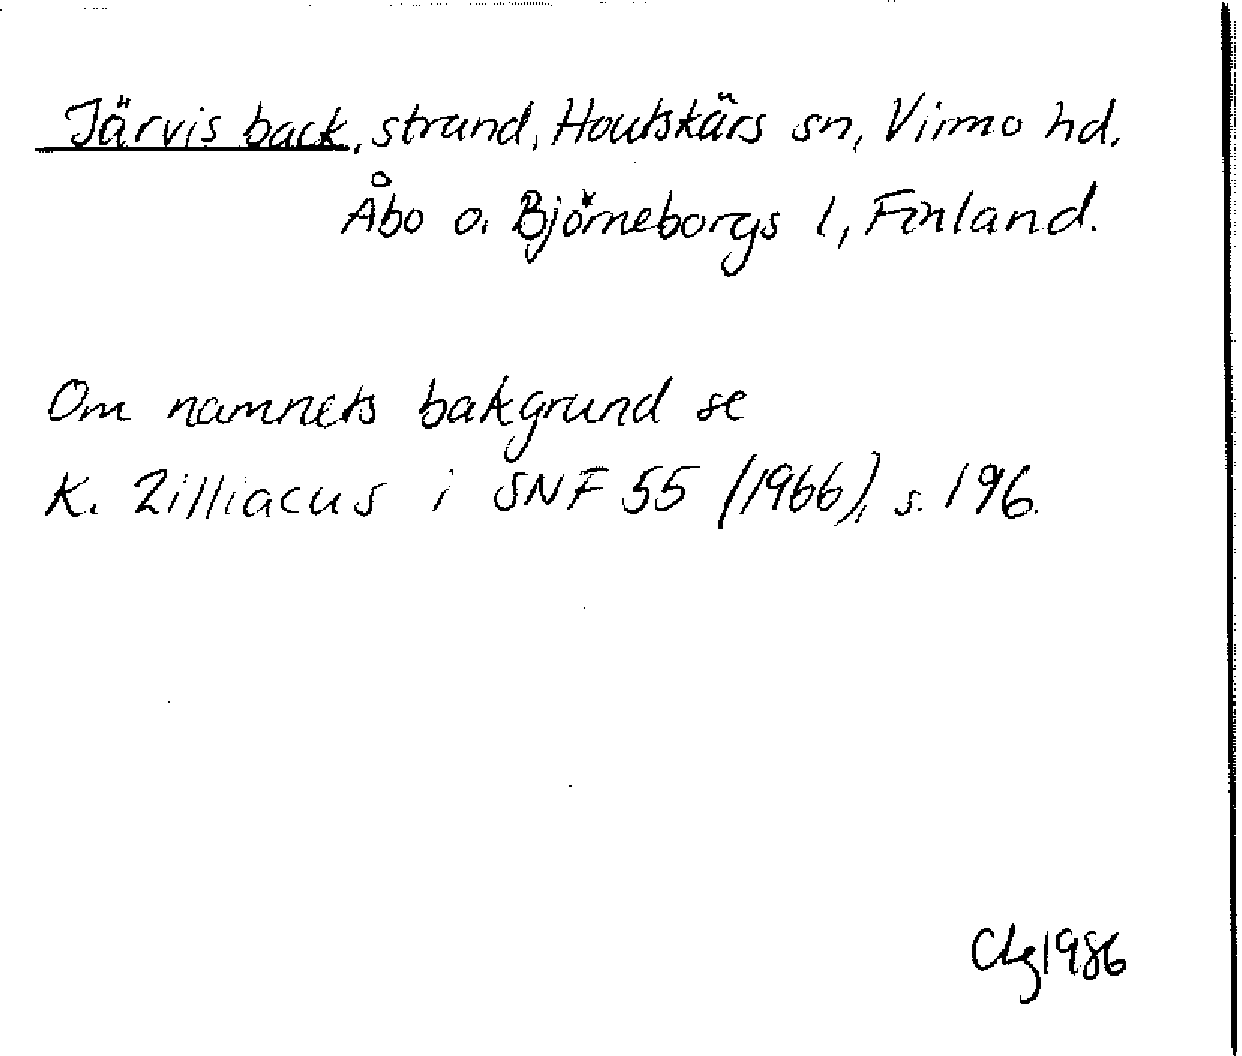 Järvis back, strand, Houtskärs sn, Virmo hd,
Åbo o. Björneborgs l, Finland.
Om namnets bakgrund se
K. Zilliacus i SNF 55 (1966), s. 196.
CLg 1986